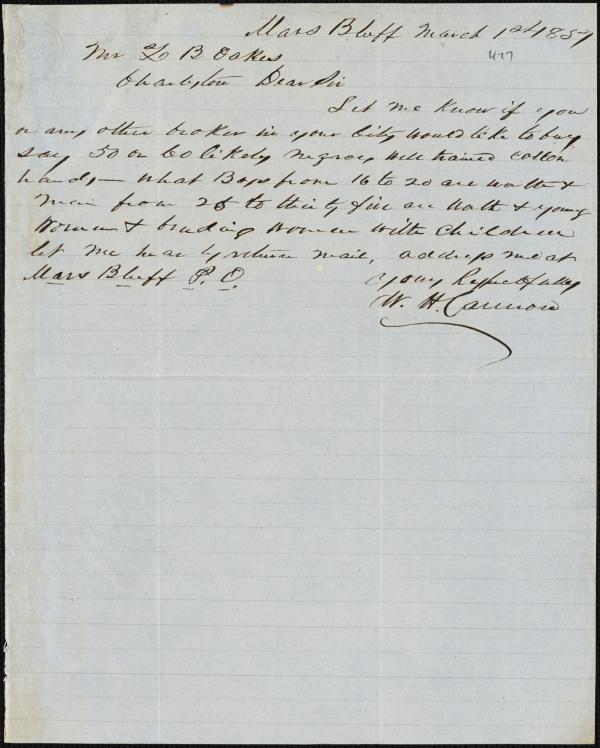 Mars Bluff March 1st 1857
477
Mr Z B Oakes
Charleston Dear Sir
Let me know if you
or any other broker in your City would like to buy
say 50 or 60 likely negroes well trained cotton
hands — what Boys from 16 to 20 are worth &
men from 25 to thirty five are worth & young
women & breading women with children
let me hear by return mail, address me at
Mars Bluff P. O. yours Respectfully
W. H. Cannon